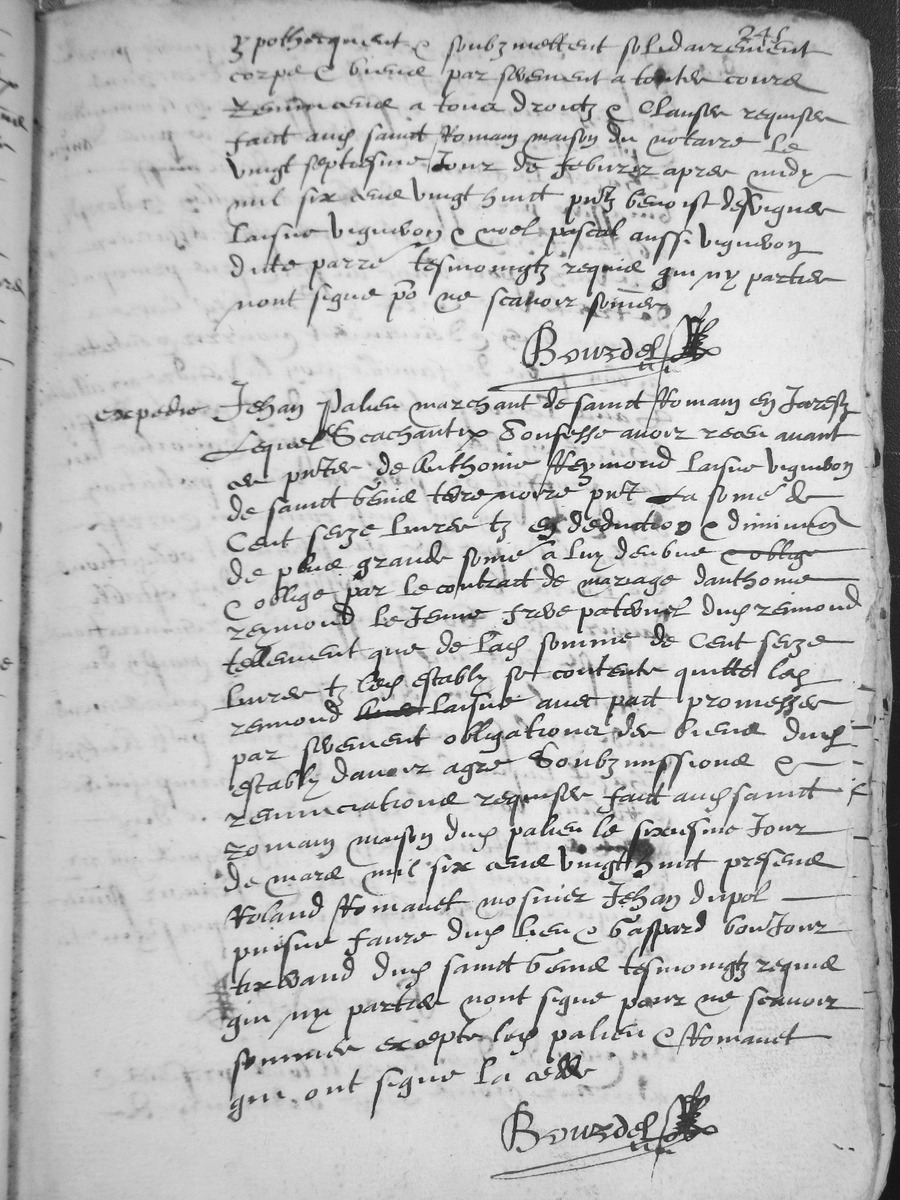 241
ypothecquent & soubzmettent solidairement
corps & biens par serement a toutes cours
Renunceans a tous droictz & clauses requises
faict aud sainct Romain maison du notaire le
vingt septiesme Jour de febvrier apres midy
mil six cens vingt huict pntz benoist desvignes
laisne vigneron & noel pascal aussi vigneron
dud parre tesmoingtz requis qui ny parties
nont signe po ne scavoir somes
Bourdel
expedie Jehan Palieu marchant de sainct Romain en Jarestz
Lequel Scachant Confesse avoir receu avant
ces pntes de Anthoine Reymond laisne vigneron
de sainct Genis terre noire pnt La some de
Cent seize livres tz en deduction & diminuon
de plus grande some a luy debue & oblige
& oblige par le contract de mariage danthoine
reymond le Jeune frere paternel dud reimond
tellement que de lad somme de Cent seize
livres tz led estably se contente quitte led
reimond laisne avec pact promesses
par serement obligations des biens dud
estably davoir agre Soubzmissions &
renunciations requises faict aud sainct
romain maison dud palieu le sixiesme Jour
de mars mil six cens vingt huict presens
Roland Romanet mosnier Jehan dupol
puisne faure dud lieu & Gaspard bonJour
tixerand dud sainct Genis tesmoingtz requis
qui ny parties nont signe pour ne scavoir
sommes excepte led palieu & Romanet
qui ont signe la cedde
Bourdel